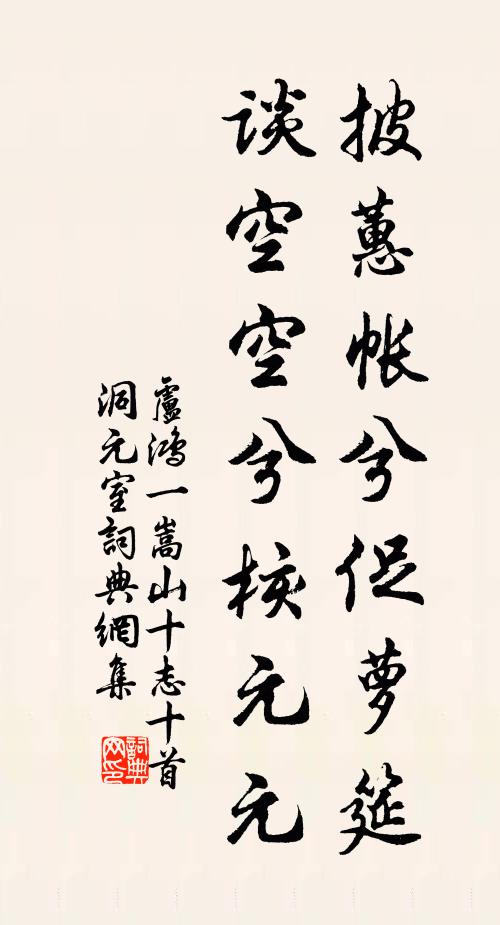 披蕙帐兮促萝筵
谈空空兮核元元
盧鴻一嵩山十志十首
洞元室詞典網集
詞典
网印